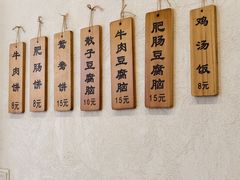 牛肉饼
8元
肥肠饼
8元
鸳鸯饼
15元
散子豆腐脑
10元
牛肉豆腐脑
15元
肥肠豆腐脑
15元
鸡汤饭
8元